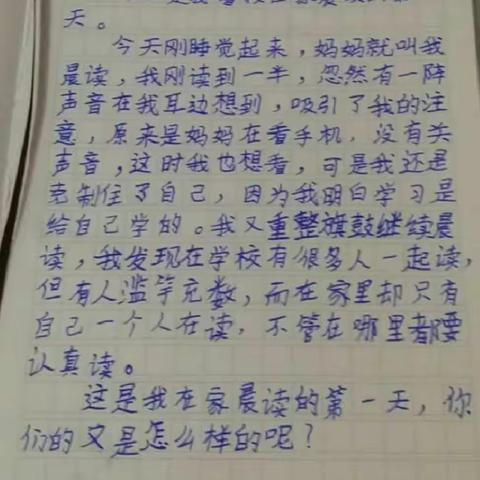 天。
今天刚睡觉起来，妈妈就叫我
晨读，我刚读到一半，忽然有一阵
声音在我耳边想到，吸引了我的注
意，原来是妈妈在看手机，没有关
声音，这时我也想看，可是我还是
克制住了自己，因为我明白学习是
给自己学的。我又重整旗鼓继续晨
读，我发现在学校有很多人一起读，
但有人滥竽充数，而在家里却只有
自己一个人在读，不管在哪里都要
认真读。
这是我在家晨读的第一天，你
们的又是怎么样的呢？